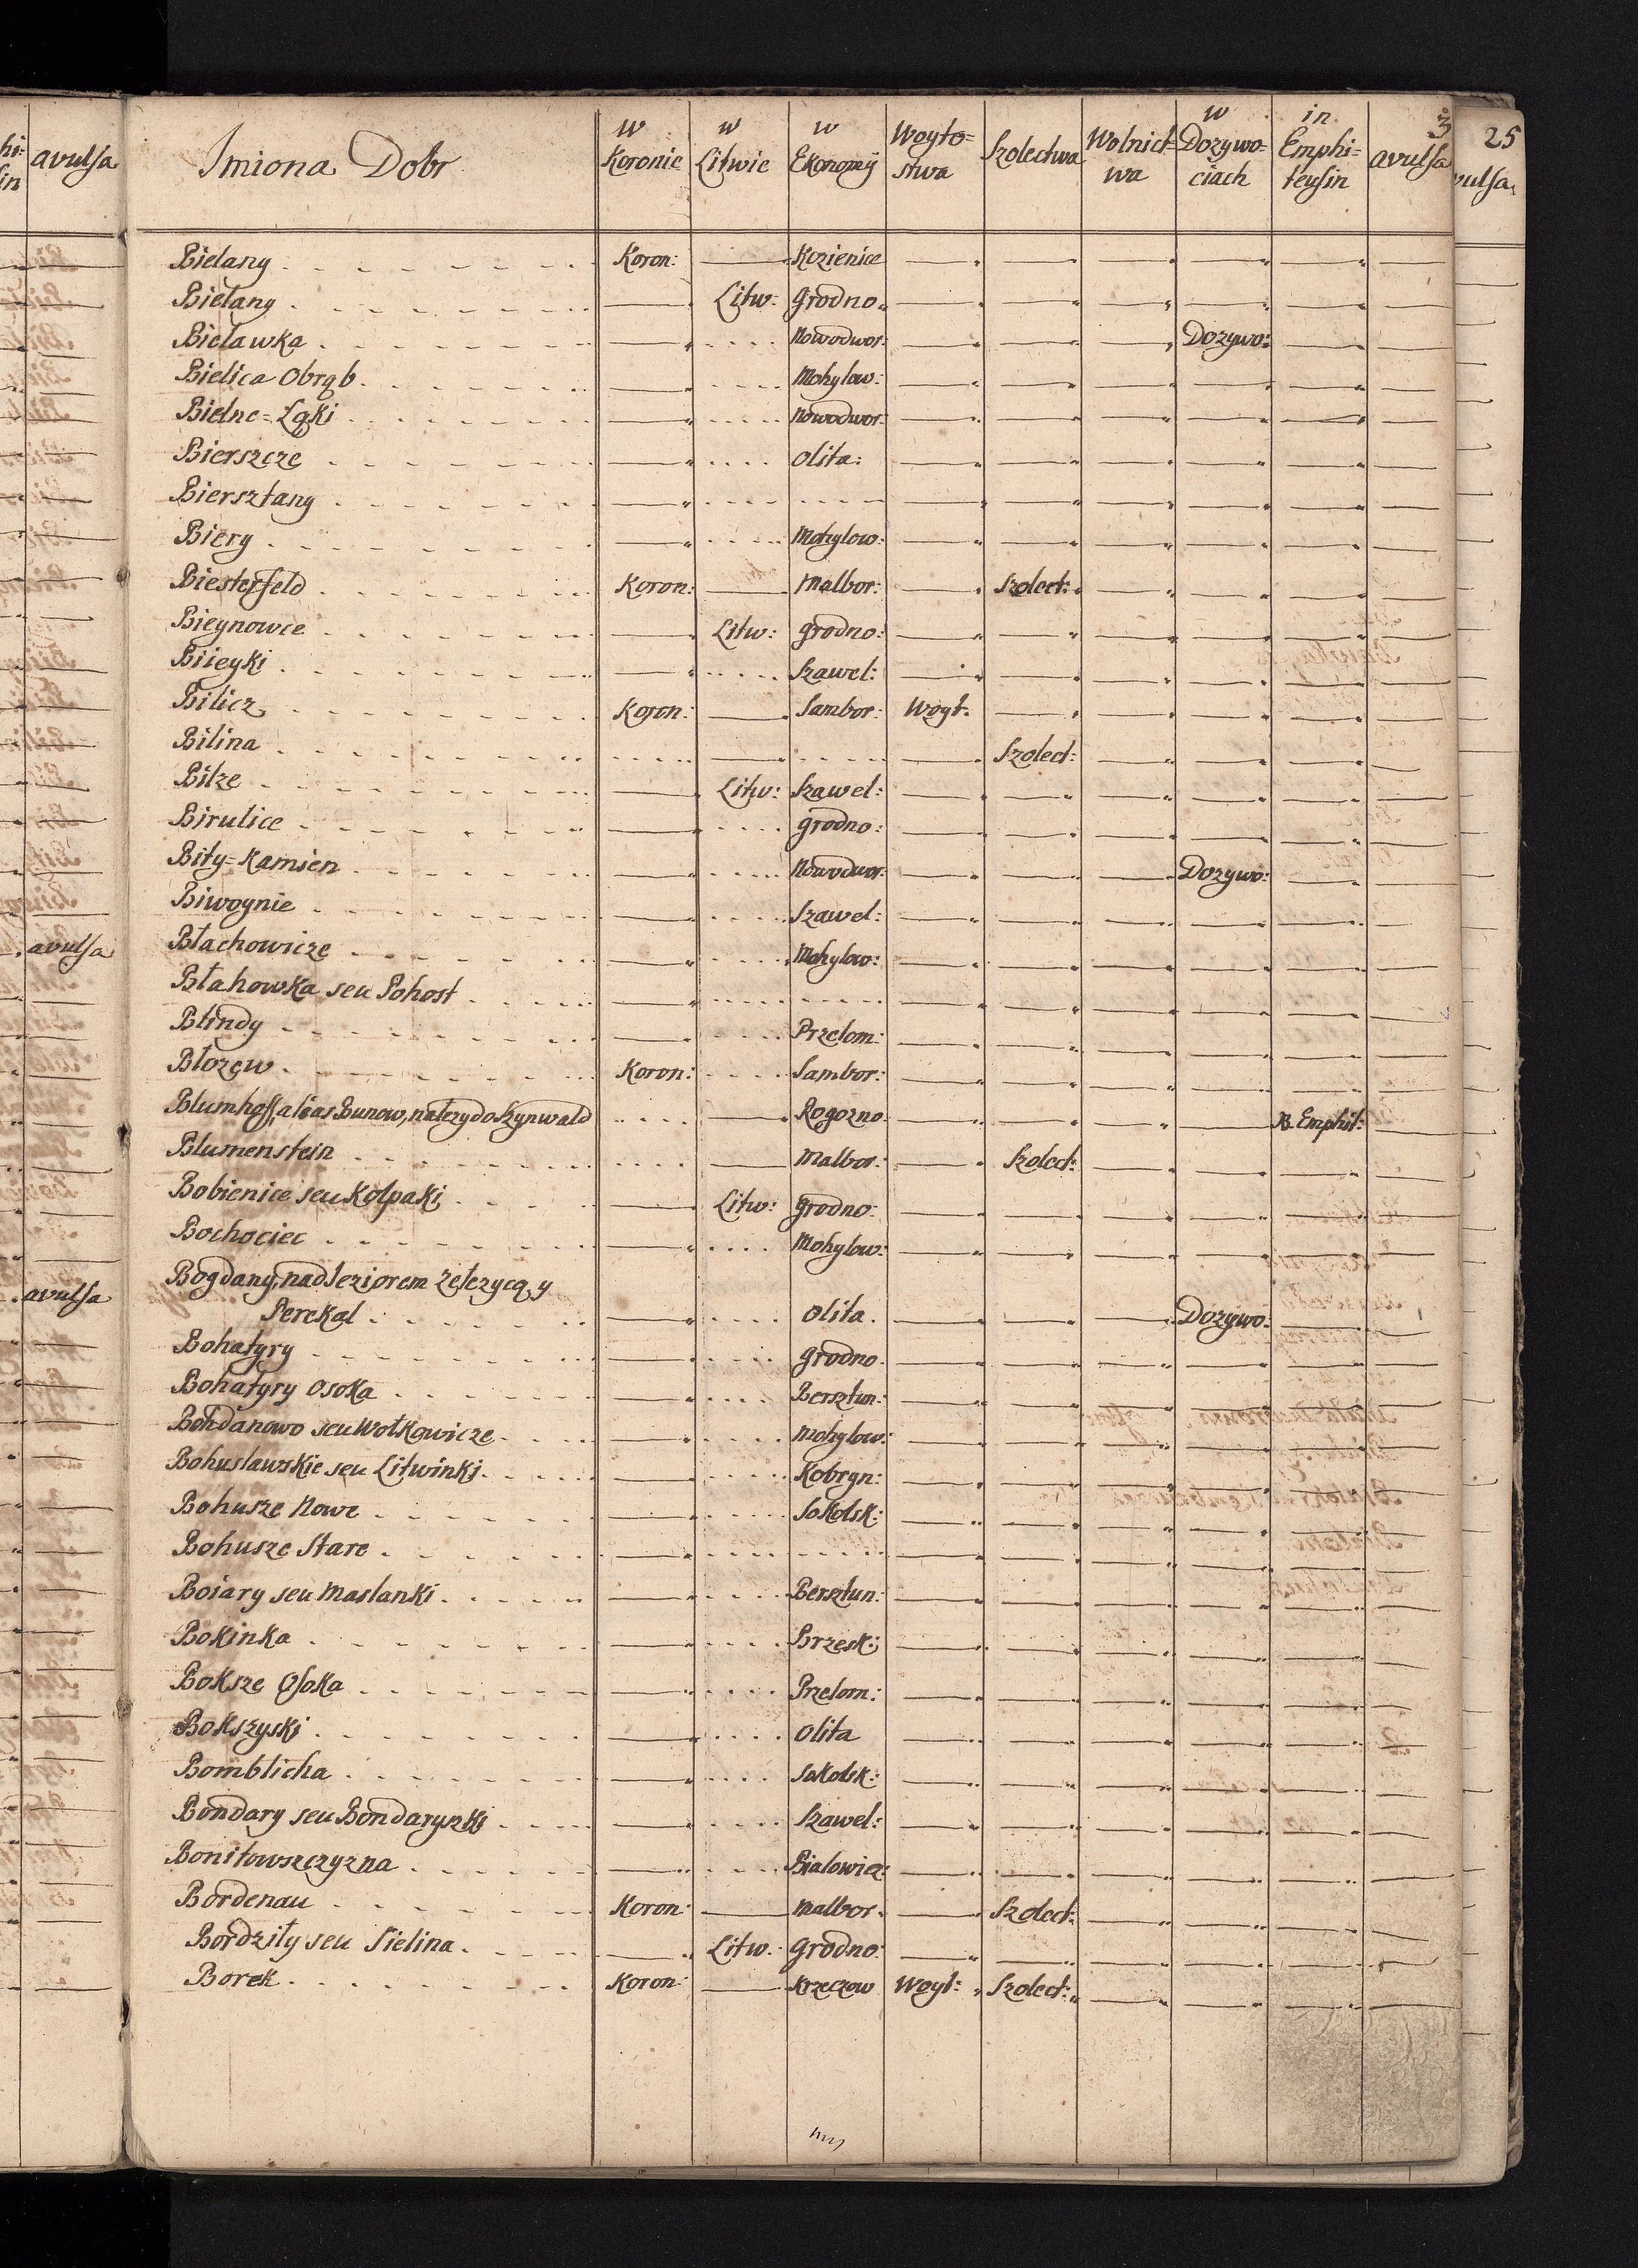 hi= avulsa
sin
avulsa
avulsa
3 25
vulsa
Imiona Dobr | w Koronie | w Litwie | w Ekonomij | Woyto=stwa | Szolectwa | Wolnict=wa | w Dozywo=ciach | in Emphi=teusin | avulsa
Bielany Koron: Kozienice
Bielany Litw: Grodno.
Bielawka Nowodwor: Dozywo:
Bielica Obrąb Mohylow:
Bielne=Łąki Nowodwor:
Bierszcze Olita:
Biersztany
Biery Mohylow:
Biesterfeld Koron: Malbor: Szolect:
Bieynowce Litw: Grodno:
Biieyki Szawel:
Bilicz Koron: Sambor: Woyt:
Bilina Szolect:
Bilze Litw: Szawel:
Birulice Grodno:
Bity=Kamien Nowodwor: Dozywo:
Biwoynie Szawel:
Błachowicze Mohylow:
Błahowka seu Pohost
Blindy Przelom:
Błozew Koron: Sambor:
Blumhoff, alias Bunow, nalezy do Szynwald Rogozno B. Emphit:
Blumenstein Malbor: Szolect:
Bobienice seu Kołpaki Litw: Grodno:
Bochociec Mohylow:
Bogdany, nad Jeziorem Zelezycą, y
Perekal Olita. Dozywo:
Bohatyry Grodno.
Bohatyry Osoka Bersztun:
Bohdanowo seu Wołkowicze Mohylow:
Bohusławskie seu Litwinki Kobryn:
Bohusze Nowe Sokolsk:
Bohusze Stare
Boiary seu Maslanki Bersztun:
Bokinka Brzesk:
Boksze Osoka Przelom:
Bokszyski Olita
Bomblicha Sokolsk:
Bondary seu Bondaryszki Szawel:
Boniłowszczyzna Bialowiez:
Bordenau Koron: Malbor. Szolect:
Bordziły seu Sielina Litw: Grodno:
Borek Koron: Krzeczow Woyt: Szolect: